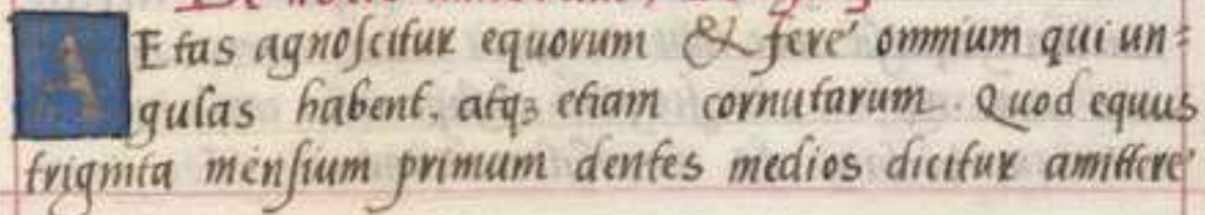 AEtas agnoscitur equorum & fere omnium qui un=
gulas habent, atqꝫ etiam cornutarum. Quod equus
triginta mensium primum dentes medios dicitur amittere